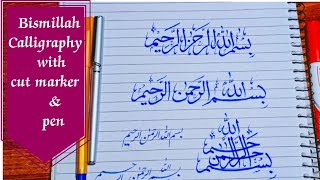 Bismillah
Calligraphy
with
cut marker
&
pen
بسم الله الرحمن الرحيم
بسم الله الرحمن الرحيم
بسم الله الرحمن الرحيم
بسم الله الرحمن الرحيم
بسم الله الرحمن الرحيم